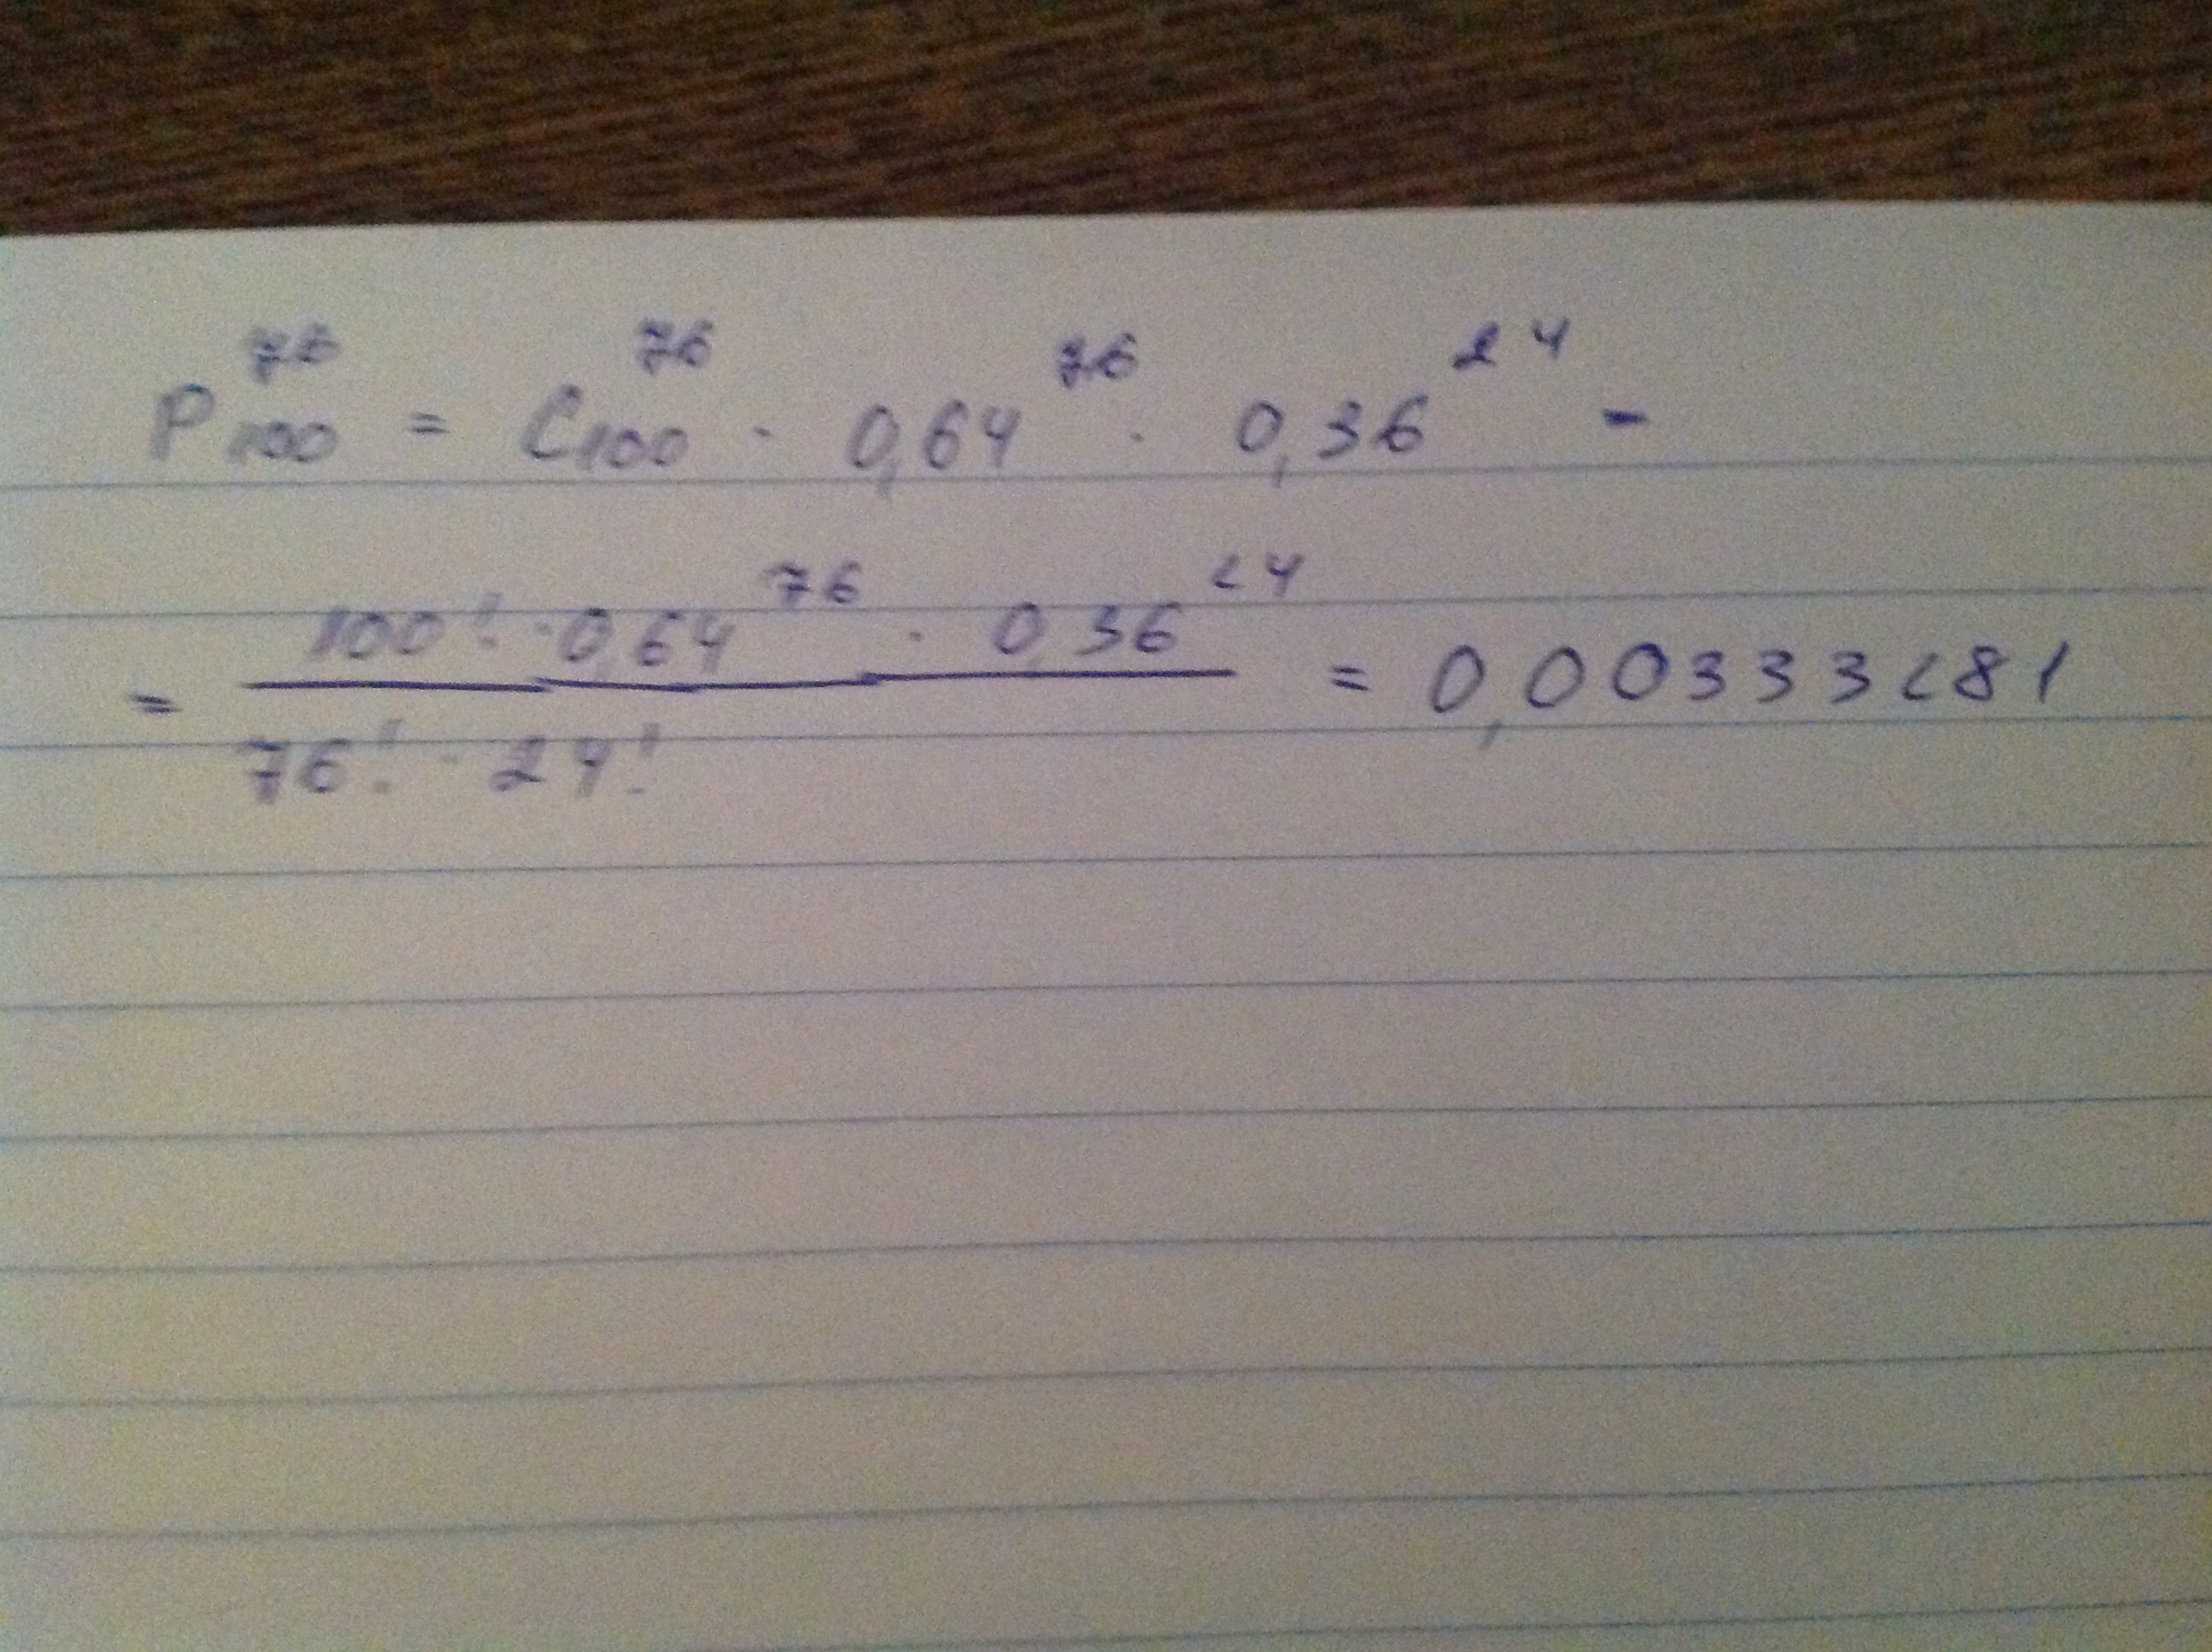 P₁₀₀⁷⁶ = C₁₀₀⁷⁶ · 0,64⁷⁶ · 0,36²⁴ =
= (100! · 0,64⁷⁶ · 0,36²⁴) / (76! · 24!) = 0,00333281